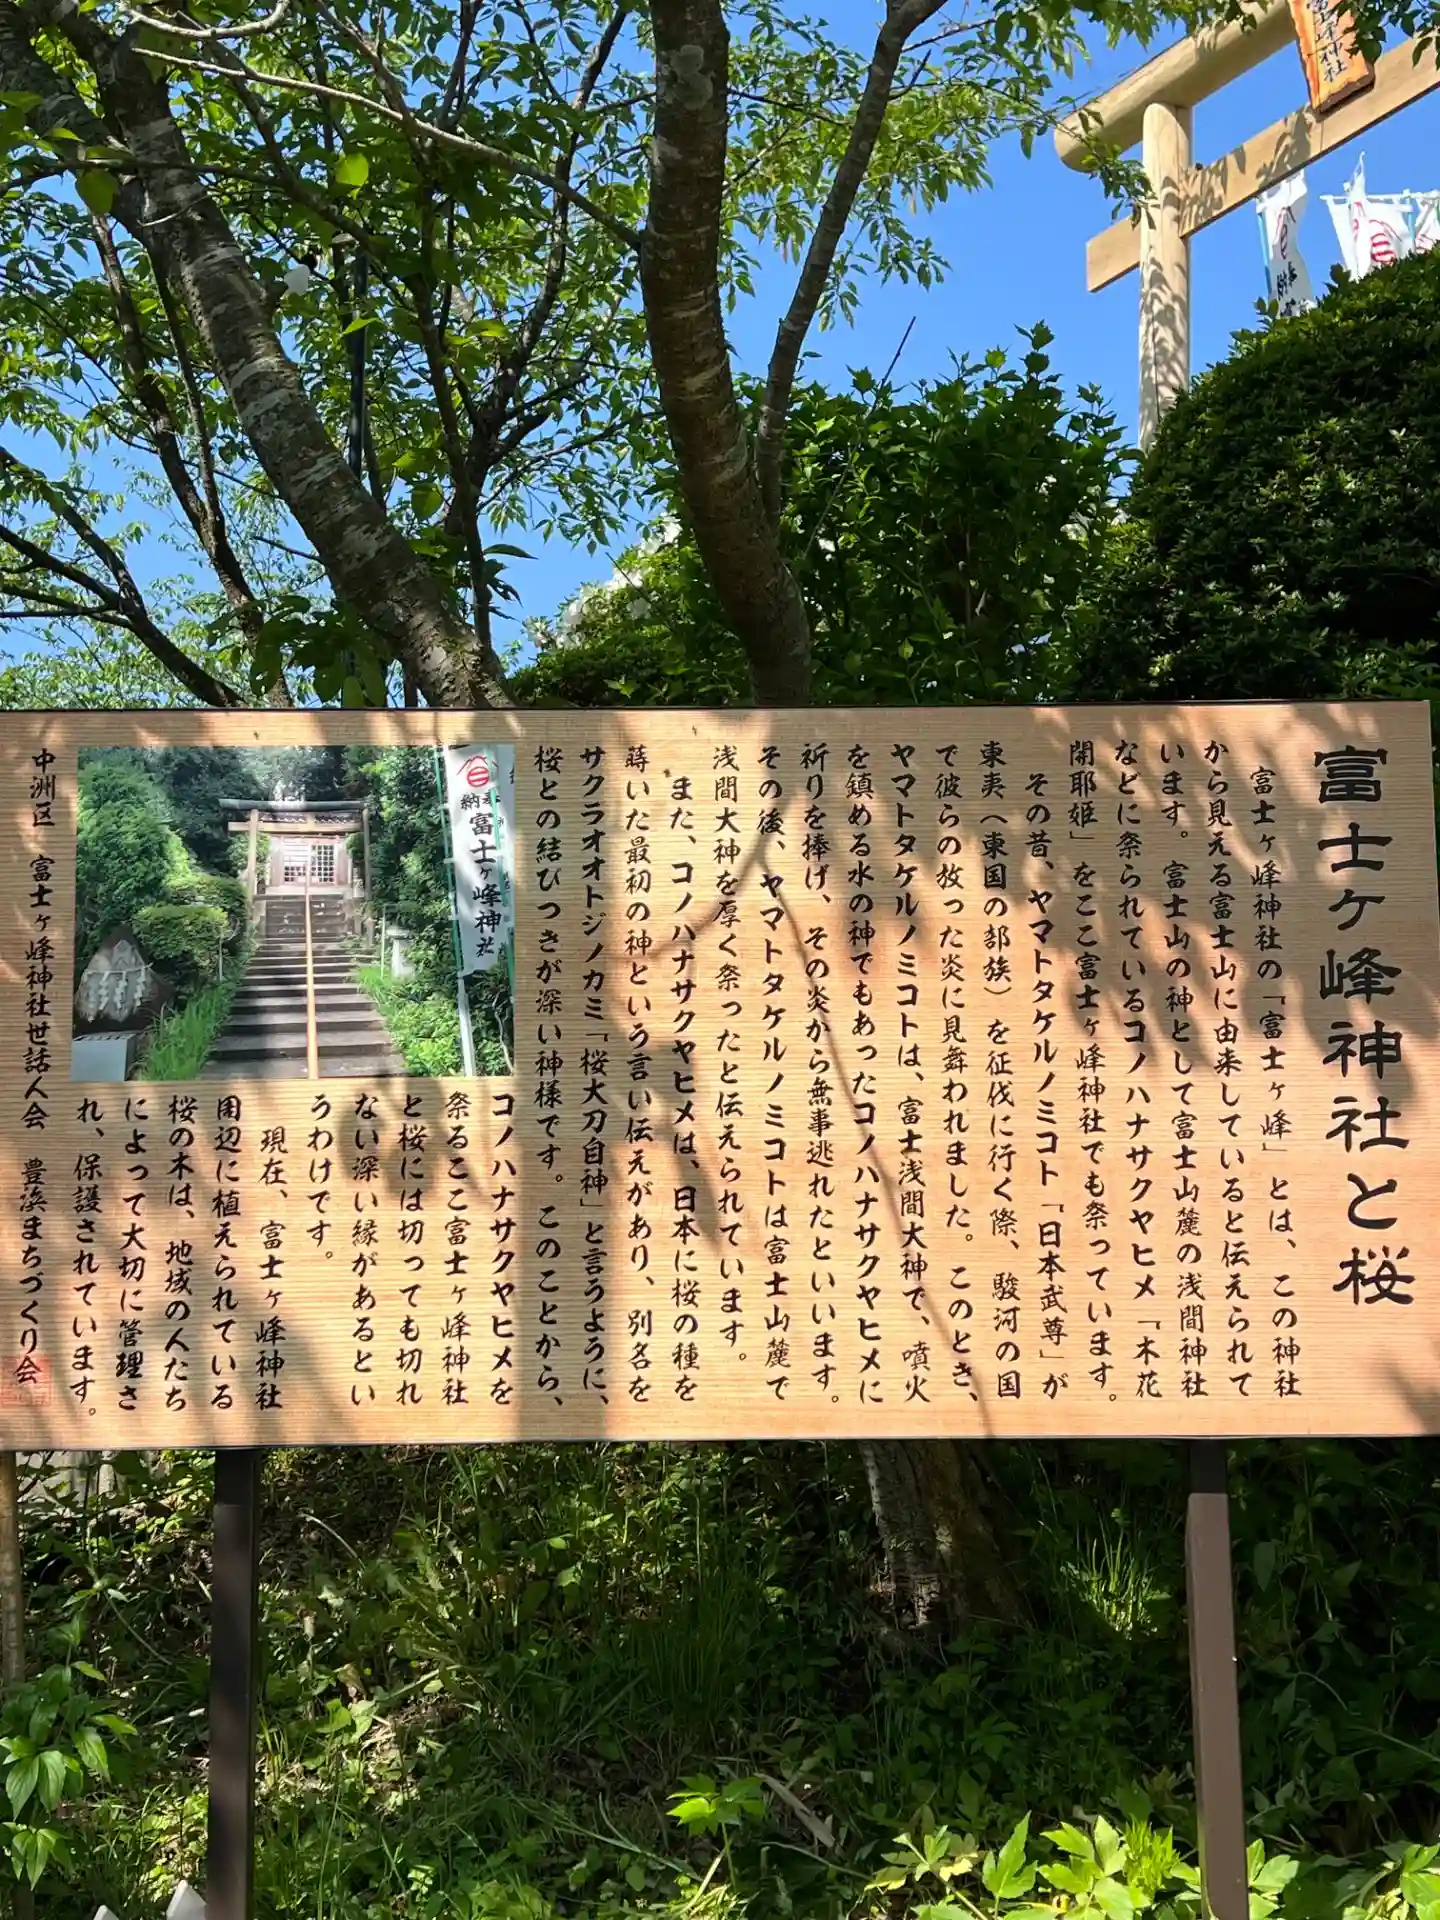 富士ヶ峰神社と桜
富士ヶ峰神社の「富士ヶ峰」とは、この神社
から見える富士山に由来していると伝えられて
います。富士山の神として富士山麓の浅間神社
などに祭られているコノハナサクヤヒメ「木花
開耶姫」をここ富士ヶ峰神社でも祭っています。
その昔、ヤマトタケルノミコト「日本武尊」が
東夷(東国の部族)を征伐に行く際、駿河の国
で彼らの放った炎に見舞われました。このとき、
ヤマトタケルノミコトは、富士浅間大神で、噴火
を鎮める水の神でもあったコノハナサクヤヒメに
祈りを捧げ、その炎から無事逃れたといいます。
その後、ヤマトタケルノミコトは富士山麓で
浅間大神を厚く祭ったと伝えられています。
また、コノハナサクヤヒメは、日本に桜の種を
蒔いた最初の神という言い伝えがあり、別名を
サクラオオトジノカミ「桜大刀自神」と言うように、
桜との結びつきが深い神様です。このことから、
コノハナサクヤヒメを
祭るここ富士ヶ峰神社
と桜には切っても切れ
ない深い縁があるとい
うわけです。
現在、富士ヶ峰神社
周辺に植えられている
桜の木は、地域の人たち
によって大切に管理さ
れ、保護されています。
中洲区 富士ヶ峰神社世話人会 豊浜まちづくり会
奉納
富士ヶ峰神社
峰神社
奉納